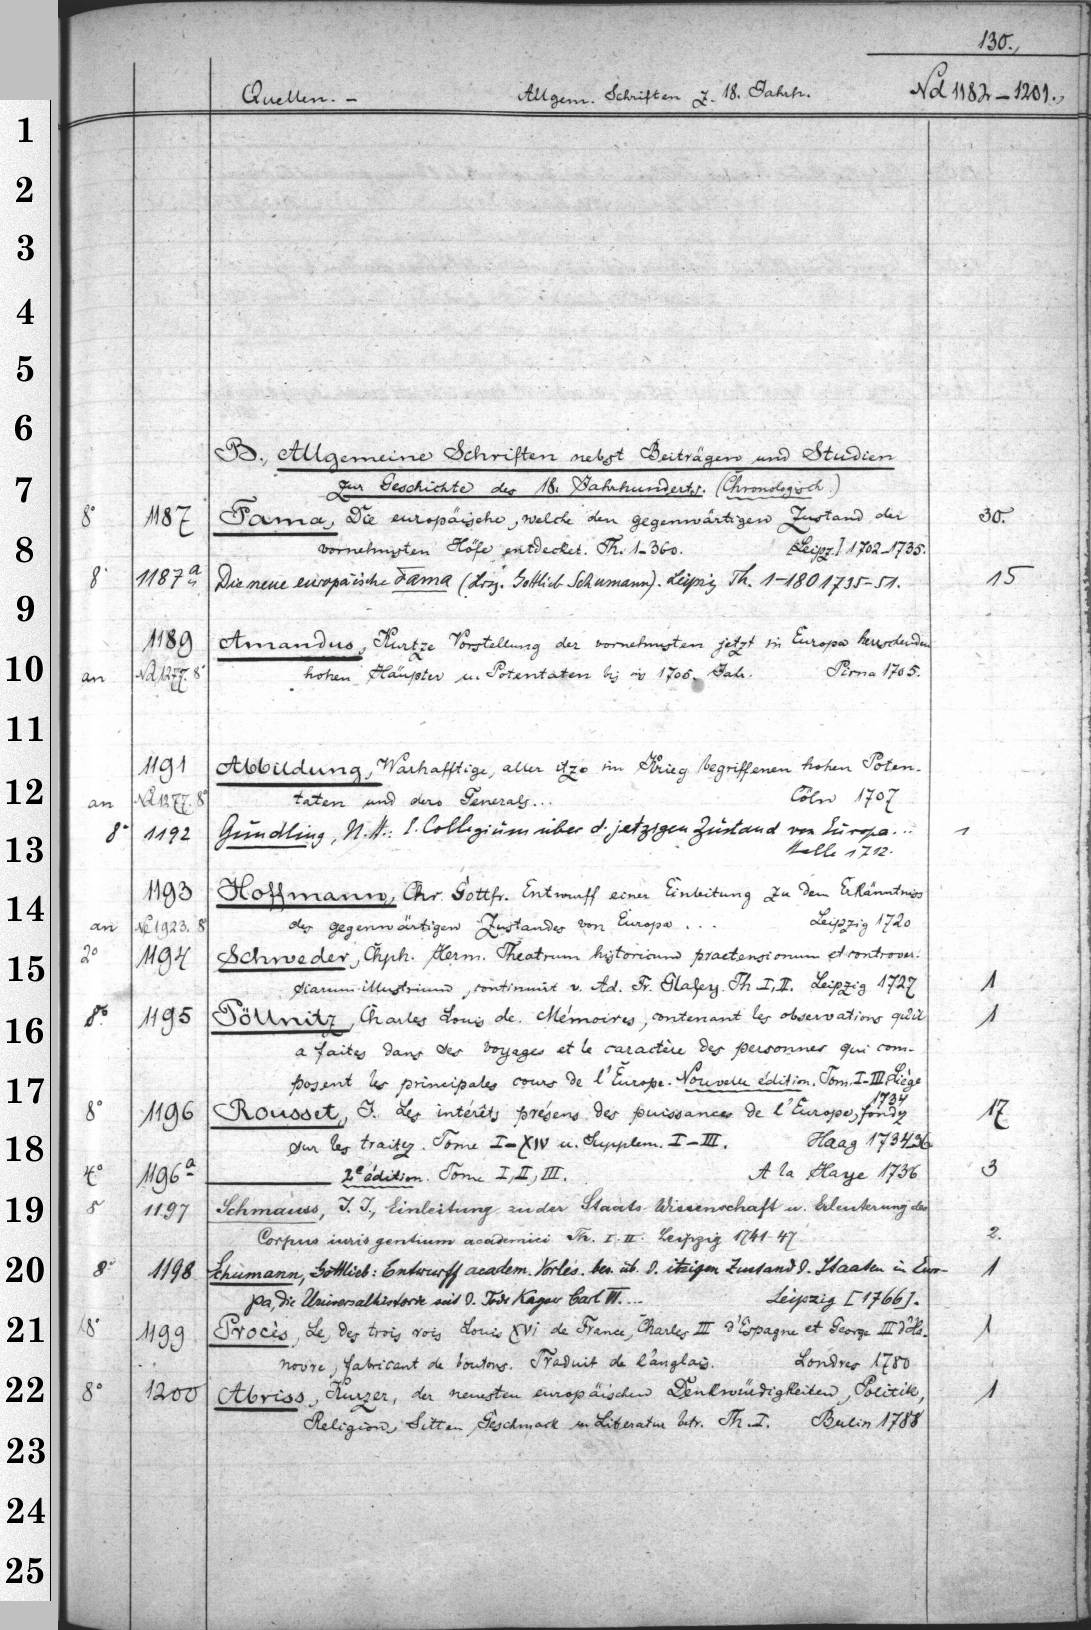 130.
Quellen. – Allgem. Schriften z. 18. Jahrh. Nd 1182–1201.
1
2
3
4
5
6
B., Allgemeine Schriften nebst Beiträgen und Studien
7 zur Geschichte des 18. Jahrhunderts. (Chronologisch.)
8° 1187 Fama, Die europäische, welche den gegenwärtigen Zustand der 30.
8 vornehmsten Höfe entdecket. Th. 1–360. [Leipz.] 1702–1735.
8° 1187a Die neue europäische Fama (Hrsg. Gottlieb Schumann). Leipzig Th. 1–180 1735–51. 15
9
1189 Amandus, Kurtze Vorstellung der vornehmsten jetzt in Europa herrschenden
10 an Nd 1277. 8° hohen Häupter u. Potentaten bis ins 1705. Jahr. Pirna 1705.
11
1191 Abbildung, Warhafftige, aller itzo im Krieg begriffenen hohen Poten-
12 an Nd 1277. 8° taten und dero Generals... Cöln 1707
8° 1192 Gundling, N. H.: I. Collegium über d. jetzigen Zustand von Europa... 1
13 Halle 1712.
1193 Hoffmann, Chr. Gottfr. Entwurff einer Einleitung zu dem Erkänntniss
14 an Ne 1923. 8° des gegenwärtigen Zustandes von Europa ... Leipzig 1720
2° 1194 Schweder, Chph. Herm. Theatrum historicum praetensionum et controver-
15 siarum illustrium, continuirt v. Ad. Fr. Glafey. Th I, II. Leipzig 1727 1
8° 1195 Pöllnitz, Charles Louis de. Mémoires, contenant les observations qu'il 1
16 a faites dans ses voyages et le caractère des personnes qui com-
17 posent les principales cours de l'Europe. Nouvelle édition. Tom. I–III Liége
1734
8° 1196 Rousset, J. Les intérêts présens des puissances de l'Europe, fondez 17
18 sur les traitez. Tome I–XIV u. Supplem. I–III. Haag 1734–36
4° 1196a 2e édition. Tome I, II, III. A la Haye 1736 3
19 1197 Schmauss, J. J., Einleitung zu der Staats-Wissenschaft u. Erleuterung des
Corpus iuris gentium academici Th. I. II. Leipzig 1741–47 2.
20 8° 1198 Schumann, Gottlieb: Entwurff academ. Vorles. bes. üb. d. itzigen Zustand d. Staaten in Euro- 1
pa, die Universalhistorie seit d. Tode Kayser Carl VI.... Leipzig [1766].
21 8° 1199 Procès, Le, des trois rois Louis XVI de France, Charles III d'Espagne et George III d'Ha- 1
novre, fabricant de boutons. Traduit de l'anglais. Londres 1780
22 8° 1200 Abriss, Kurzer, der neuesten europäischen Denkwürdigkeiten, Politik, 1
Religion, Sitten, Geschmack u. Literatur betr. Th. I. Berlin 1788
23
24
25